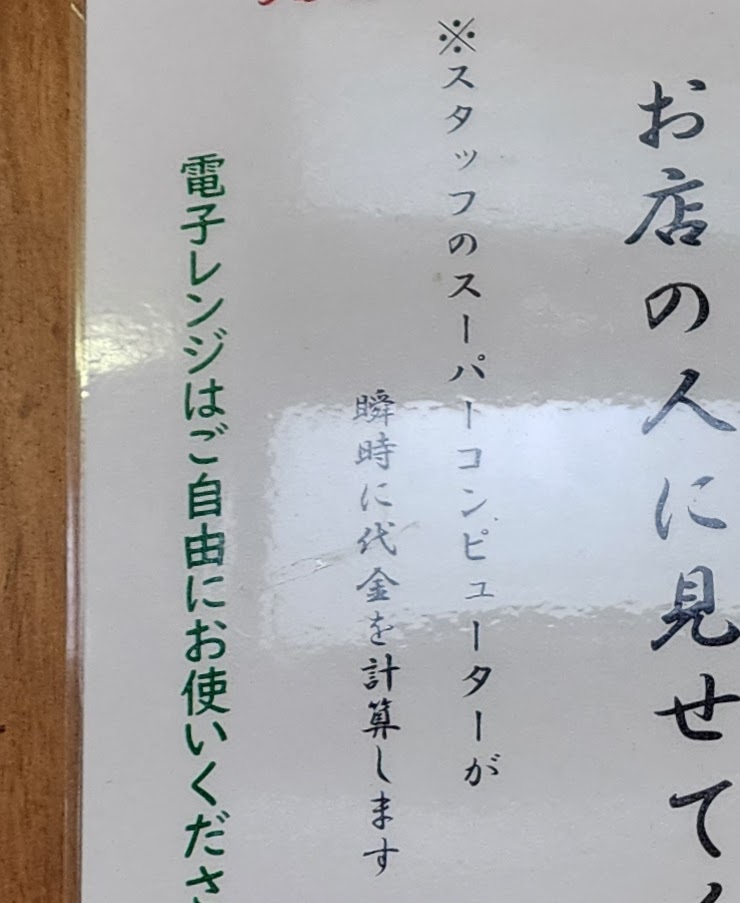 お店の人に見せてく
※スタッフのスーパーコンピューターが
瞬時に代金を計算します
電子レンジはご自由にお使いくださ